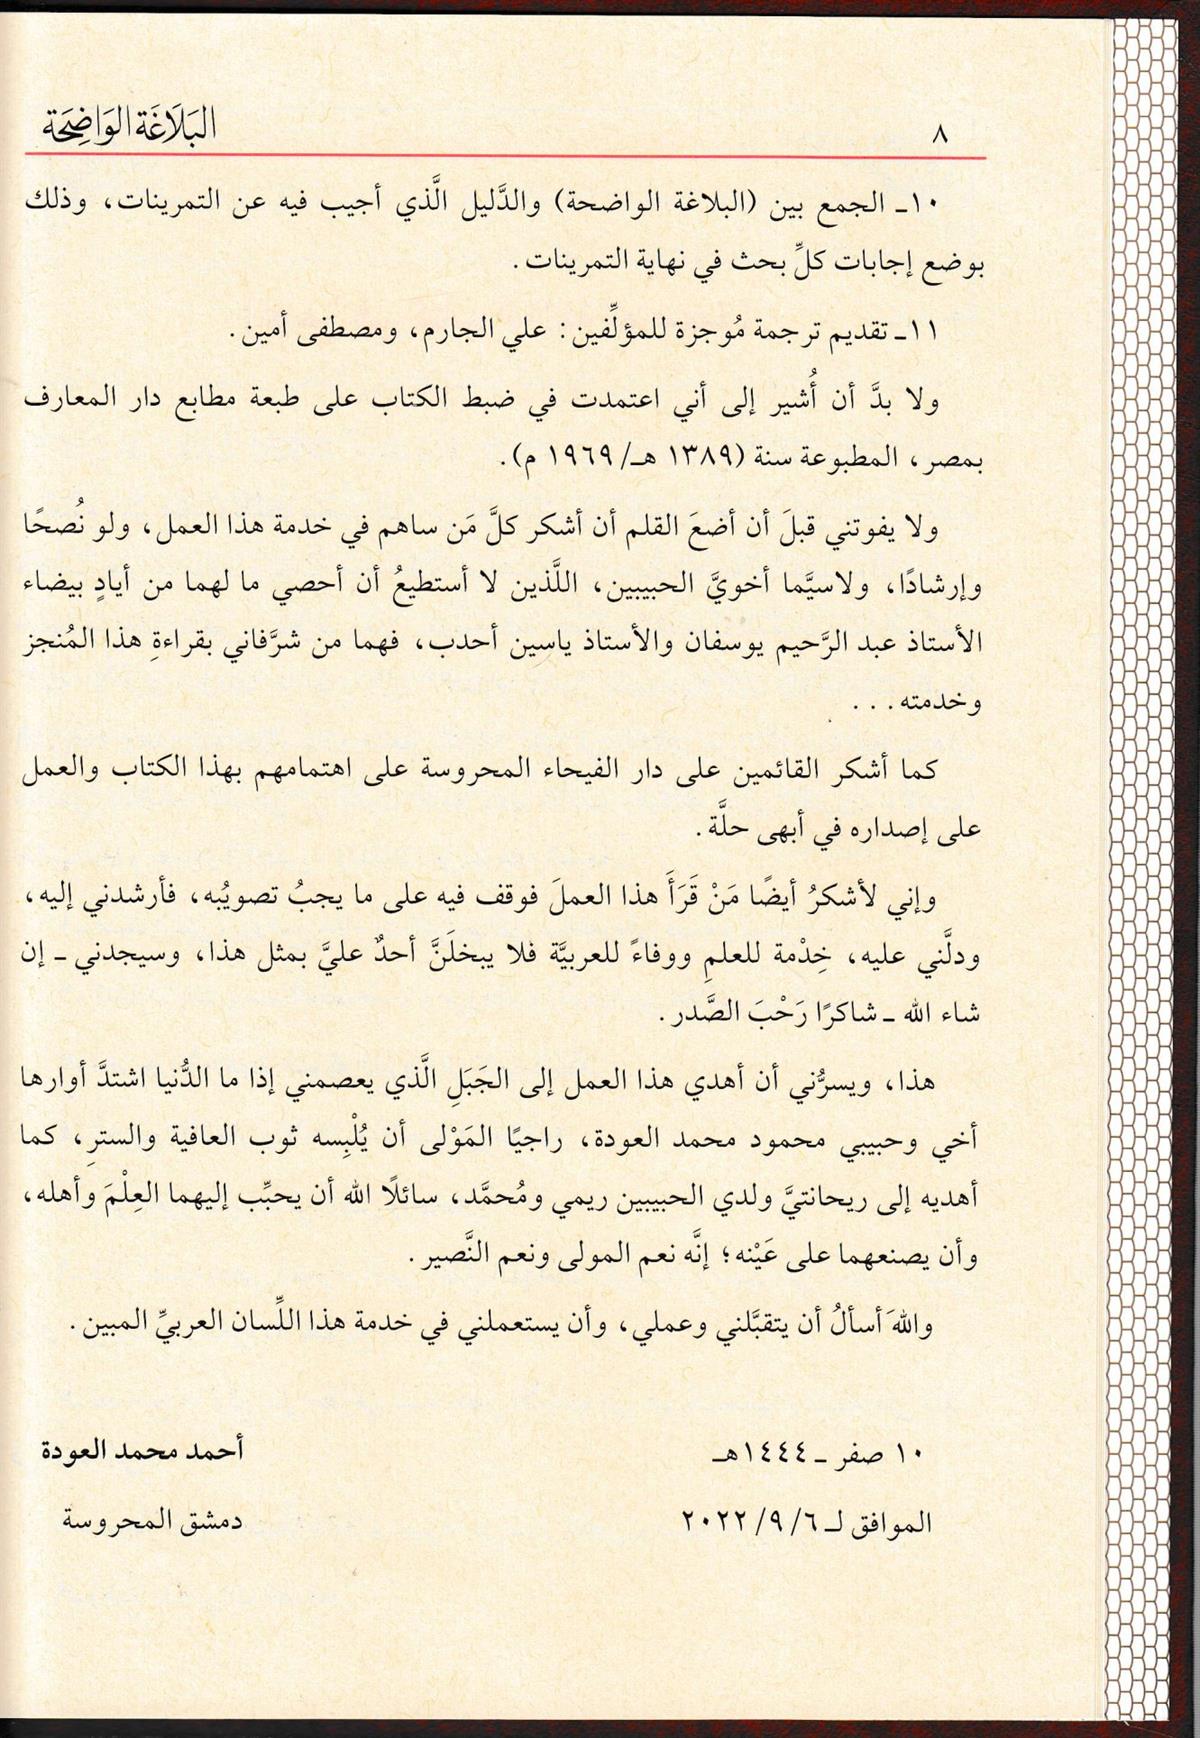 ٨
البَلَاغَة الوَاضِحَة
١٠ـ الجمع بين (البلاغة الواضحة) والدَّليل الَّذي أجيب فيه عن التمرينات، وذلك
بوضع إجابات كلِّ بحث في نهاية التمرينات.
١١ـ تقديم ترجمة مُوجزة للمؤلِّفين: علي الجارم، ومصطفى أمين.
ولا بدَّ أن أُشير إلى أني اعتمدت في ضبط الكتاب على طبعة مطابع دار المعارف
بمصر، المطبوعة سنة (١٣٨٩ هـ/ ١٩٦٩ م).
ولا يفوتني قبلَ أن أضعَ القلم أن أشكر كلَّ مَن ساهم في خدمة هذا العمل، ولو نُصحًا
وإرشادًا، ولاسيَّما أخويَّ الحبيبين، اللَّذين لا أستطيعُ أن أحصي ما لهما من أيادٍ بيضاء
الأستاذ عبد الرَّحيم يوسفان والأستاذ ياسين أحدب، فهما من شرَّفاني بقراءةِ هذا المُنجز
وخدمته...
كما أشكر القائمين على دار الفيحاء المحروسة على اهتمامهم بهذا الكتاب والعمل
على إصداره في أبهى حلَّة.
وإني لأشكرُ أيضًا مَنْ قَرَأَ هذا العملَ فوقف فيه على ما يجبُ تصويُبه، فأرشدني إليه،
ودلَّني عليه، خِدْمة للعلمِ ووفاءً للعربيَّة فلا يبخلَنَّ أحدٌ عليَّ بمثل هذا، وسيجدني ـ إن
شاء الله ـ شاكرًا رَحْبَ الصَّدر.
هذا، ويسرُّني أن أهدي هذا العمل إلى الجَبَلِ الَّذي يعصمني إذا ما الدُّنيا اشتدَّ أوارها
أخي وحبيبي محمود محمد العودة، راجيًا المَوْلى أن يُلْبِسه ثوب العافية والسترِ، كما
أهديه إلى ريحانتيَّ ولدي الحبيبين ريمي ومُحمَّد، سائلًا الله أن يحبِّب إليهما العِلْمَ وأهله،
وأن يصنعهما على عَيْنه؛ إنَّه نعم المولى ونعم النَّصير.
واللهَ أسألُ أن يتقبَّلني وعملي، وأن يستعملني في خدمة هذا اللِّسان العربيِّ المبين.
١٠ صفر ـ ١٤٤٤هـ
أحمد محمد العودة
الموافق لـ ٦/ ٩/ ٢٠٢٢
دمشق المحروسة